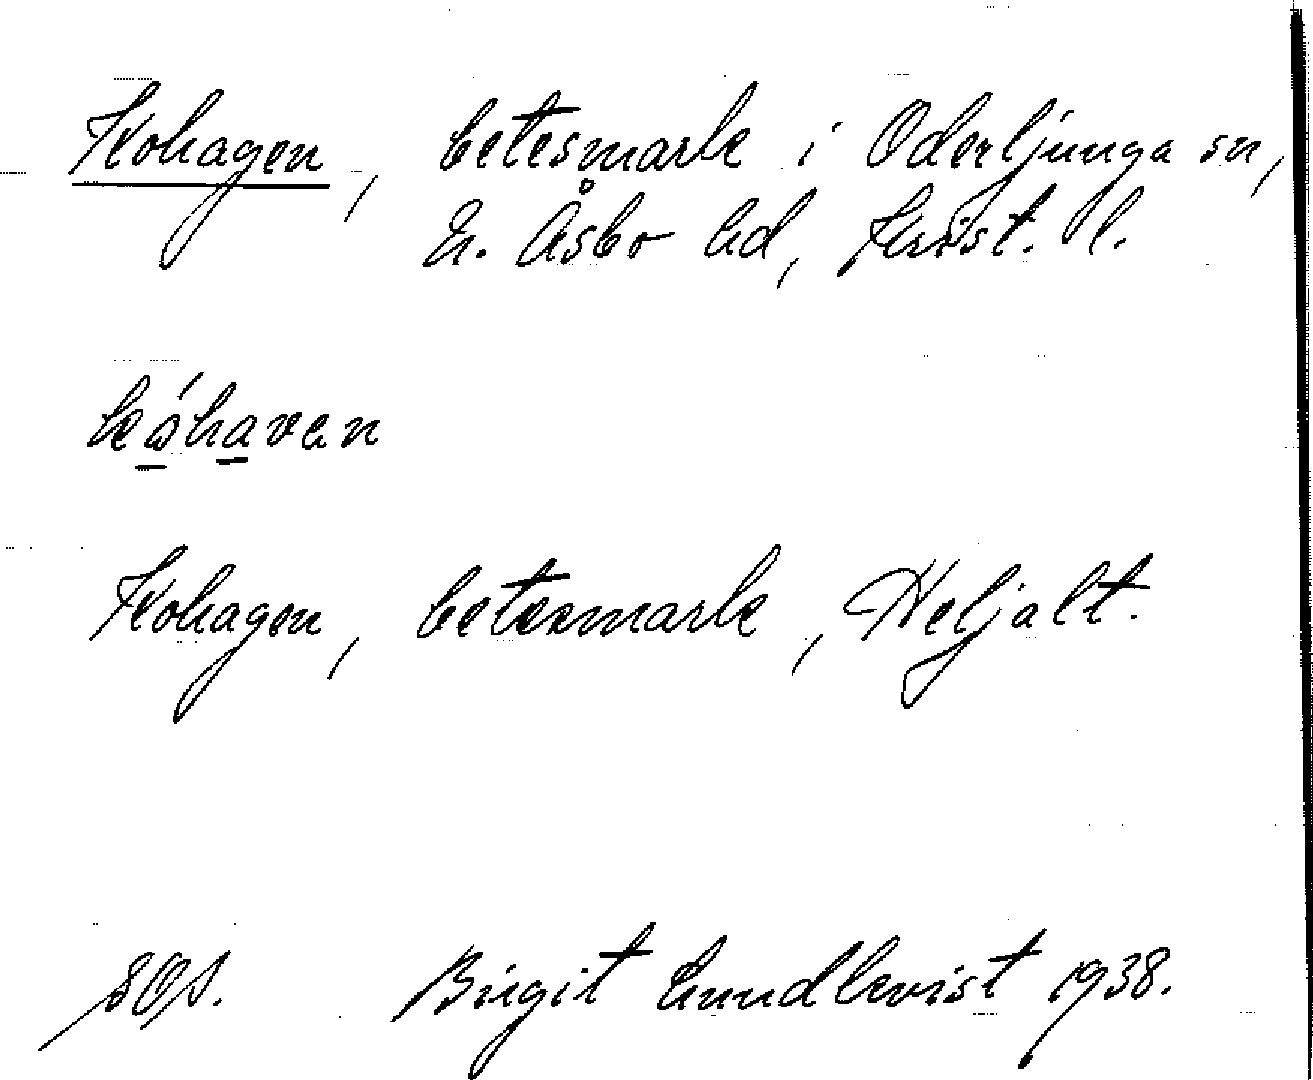 Kohagen, betesmark i Oderljunga sn,
N. Åsbo hd, Krist. l.
kóhaven
Kohagen, betesmark, Heljalt.
SOS. Birgit Lundkvist 1938.